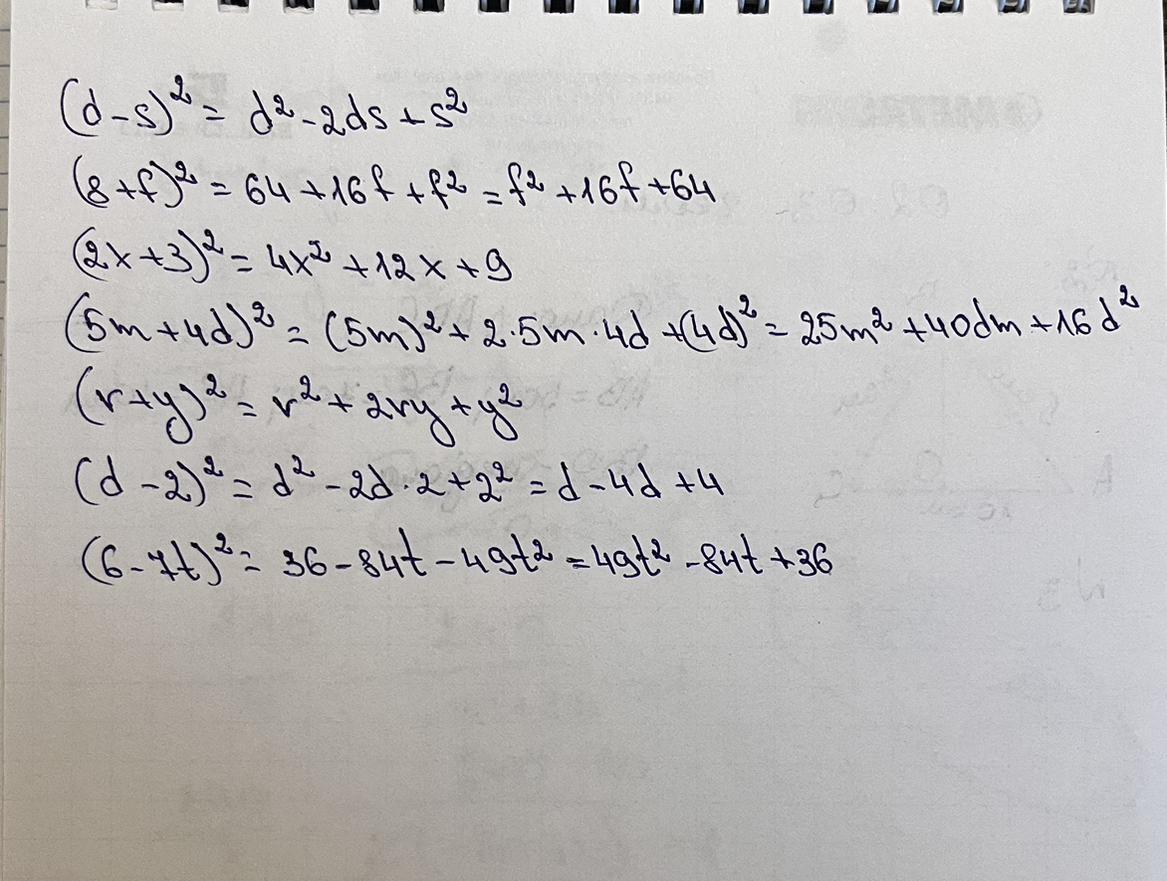 (d-s)² = d² - 2ds + s²
(8+f)² = 64 + 16f + f² = f² + 16f + 64
(2x+3)² = 4x² + 12x + 9
(5m+4d)² = (5m)² + 2·5m·4d + (4d)² = 25m² + 40dm + 16d²
(r+y)² = r² + 2ry + y²
(d-2)² = d² - 2d·2 + 2² = d - 4d + 4
(6-7t)² = 36 - 84t - 49t² = 49t² - 84t + 36